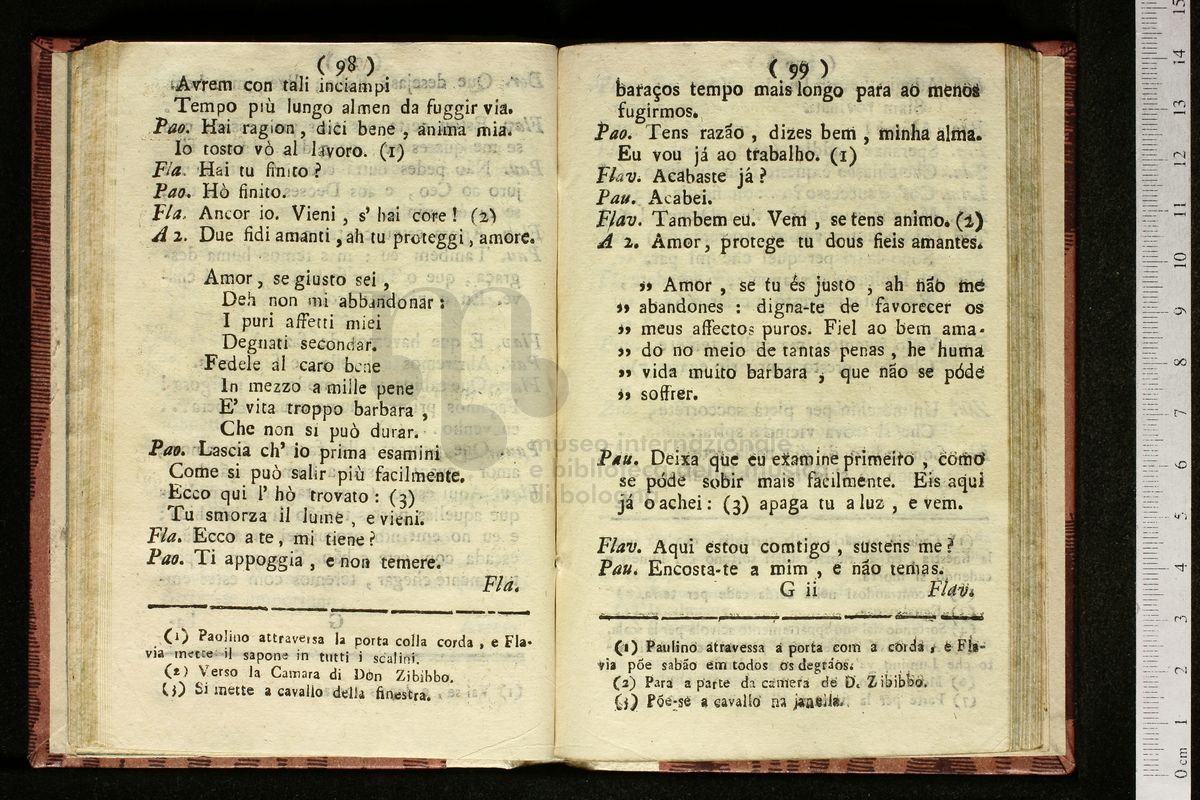 ( 98 )
Avrem con tali inciampi
Tempo più lungo almen da fuggir via.
Pao. Hai ragion, dici bene, anima mia.
Io tosto vò al lavoro. (1)
Fla. Hai tu finito?
Pao. Hò finito.
Fla. Ancor io. Vieni, s' hai core! (2)
A 2. Due fidi amanti, ah tu proteggi, amore.
Amor, se giusto sei,
Deh non mi abbandonar:
I puri affetti miei
Degnati secondar.
Fedele al caro bene
In mezzo a mille pene
E' vita troppo barbara,
Che non si può durar.
Pao. Lascia ch' io prima esamini
Come si può salir più facilmente.
Ecco qui l' hò trovato: (3)
Tu smorza il lume, e vieni.
Fla. Ecco a te, mi tiene?
Pao. Ti appoggia, e non temere.
Fla.
(1) Paolino attraversa la porta colla corda, e Fla-
via mette il sapone in tutti i scalini.
(2) Verso la Camara di Don Zibibbo.
(3) Si mette a cavallo della finestra.
( 99 )
baraços tempo mais longo para ao menos
fugirmos.
Pao. Tens razão, dizes bem, minha alma.
Eu vou já ao trabalho. (1)
Flav. Acabaste já?
Pau. Acabei.
Flav. Tambem eu. Vem, se tens animo. (2)
A 2. Amor, protege tu dous fieis amantes.
„ Amor, se tu és justo, ah não me
„ abandones: digna-te de favorecer os
„ meus affectos puros. Fiel ao bem ama-
„ do no meio de tantas penas, he huma
„ vida muito barbara, que não se póde
„ soffrer.
Pau. Deixa que eu examine primeiro, como
se póde sobir mais facilmente. Eis aqui
já o achei: (3) apaga tu a luz, e vem.
Flav. Aqui estou comtigo, sustens me?
Pau. Encosta-te a mim, e não temas.
G ii Flav.
(1) Paulino atravessa a porta com a corda, e Fla-
via põe sabão em todos os degráos.
(2) Para a parte da camera de D. Zibibbo.
(3) Põe-se a cavallo na janella.
museo internazionale
e biblioteca della musica
di bologna
0 cm 1 2 3 4 5 6 7 8 9 10 11 12 13 14 15